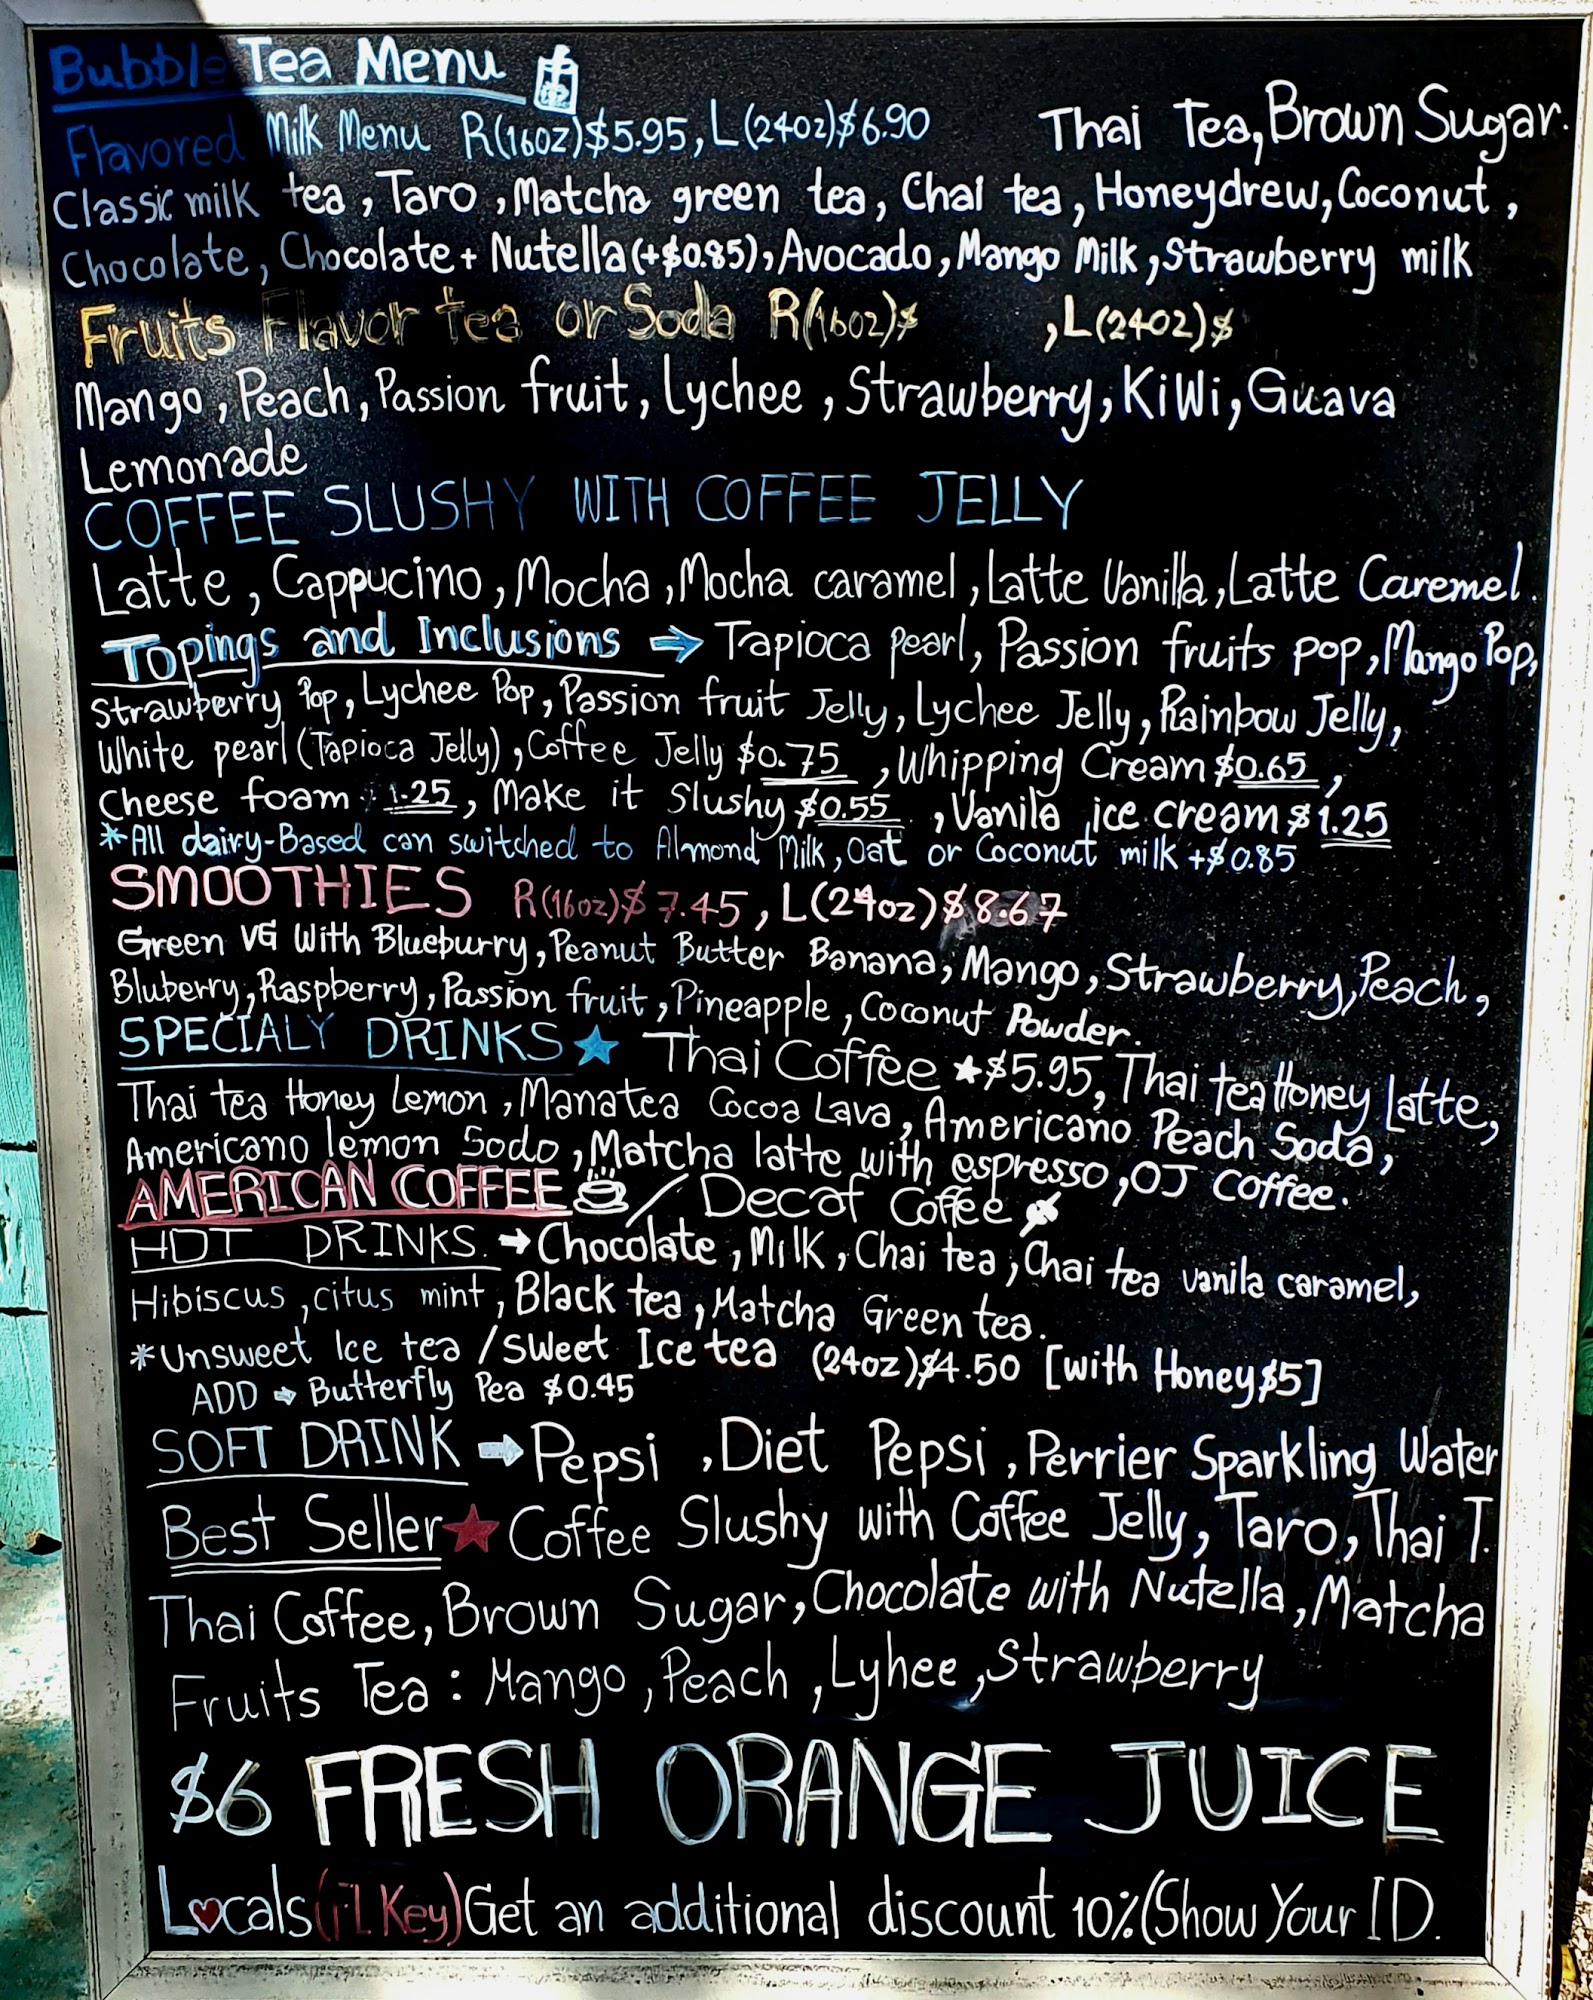 Bubble Tea Menu
Flavored Milk Menu R(16oz)$5.95, L(24oz)$6.90 Thai Tea, Brown Sugar.
Classic milk tea, Taro, Matcha green tea, Chai tea, Honeydrew, Coconut,
Chocolate, Chocolate + Nutella (+$0.85), Avocado, Mango Milk, Strawberry milk
Fruits Flavor tea or Soda R(16oz)$ , L(24oz)$
Mango, Peach, Passion fruit, Lychee, Strawberry, KiWi, Guava
Lemonade
COFFEE SLUSHY WITH COFFEE JELLY
Latte, Cappucino, Mocha, Mocha caramel, Latte Vanilla, Latte Caremel.
Topings and Inclusions → Tapioca pearl, Passion fruits pop, Mango Pop,
Strawberry Pop, Lychee Pop, Passion fruit Jelly, Lychee Jelly, Rainbow Jelly,
White pearl (Tapioca Jelly), Coffee Jelly $0.75, Whipping Cream $0.65,
Cheese foam 1.25, Make it Slushy $0.55, Vanila ice cream $1.25
*All dairy-Based can switched to Almond Milk, Oat or Coconut milk +$0.85
SMOOTHIES R(16oz)$7.45, L(24oz)$8.67
Green VG With Blueburry, Peanut Butter Banana, Mango, Strawberry, Peach,
Bluberry, Raspberry, Passion fruit, Pineapple, Coconut Powder.
SPECIALY DRINKS ★ Thai Coffee ★ $5.95, Thai tea Honey Latte,
Thai tea Honey Lemon, Manatea Cocoa Lava, Americano Peach Soda,
Americano lemon Sodo, Matcha latte with espresso, OJ Coffee.
AMERICAN COFFEE / Decaf Coffee
HOT DRINKS. → Chocolate, Milk, Chai tea, Chai tea vanila caramel,
Hibiscus, citus mint, Black tea, Matcha Green tea.
*Unsweet Ice tea / Sweet Ice tea (24oz) $4.50 [with Honey $5]
ADD → Butterfly Pea $0.45
SOFT DRINK → Pepsi, Diet Pepsi, Perrier Sparkling Water
Best Seller ★ Coffee Slushy with Coffee Jelly, Taro, Thai T.
Thai Coffee, Brown Sugar, Chocolate with Nutella, Matcha
Fruits Tea : Mango, Peach, Lyhee, Strawberry
$6 FRESH ORANGE JUICE
Locals (FL Key) Get an additional discount 10% (Show Your ID.